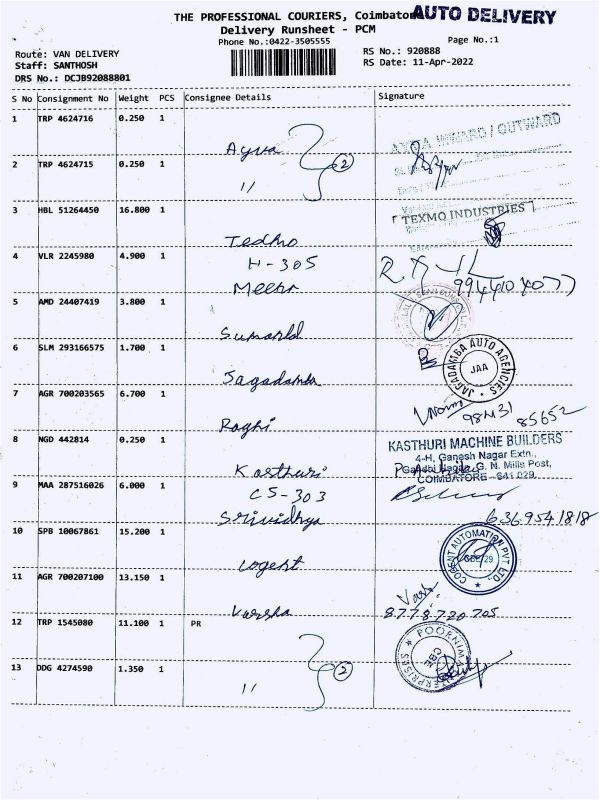 THE PROFESSIONAL COURIERS, Coimbato
AUTO DELIVERY
Delivery Runsheet - PCM
Phone No.:0422-3505555
Page No.:1
Route: VAN DELIVERY
RS No.: 920888
Staff: SANTHOSH
RS Date: 11-Apr-2022
DRS No.: DCJB92088801
S No Consignment No Weight PCS Consignee Details Signature
1 TRP 4624716 0.250 1
INWARD / OUTWARD
Ayva
2 TRP 4624715 0.250 1
2
"
3 HBL 51264450 16.800 1
TEXMO INDUSTRIES
H-305
4 VLR 2245980 4.900 1
Meena
5 AMD 24407419 3.800 1
6 SLM 293166575 1.700 1
JAGADAMBA AUTO AGENCIES
JAA
Jagadamba
7 AGR 700203565 6.700 1
98431 85652
Raghi
8 NGD 442814 0.250 1
KASTHURI MACHINE BUILDERS
4-H, Ganesh Nagar Extn.,
Gandhi Nagar, G. N. Mills Post,
COIMBATORE - 641 029
Kasthuri
CS-303
9 MAA 287516026 6.000 1
Srividhya
6369541818
10 SPB 10067861 15.200 1
COGENT AUTOMATION PVT LTD.,
CBE-29
Cogent
11 AGR 700207100 13.150 1
Varsha
8778720705
12 TRP 1545080 11.100 1 PR
POORNIMA ENTERPRISES
CBE
13 DDG 4274590 1.350 1
2
"